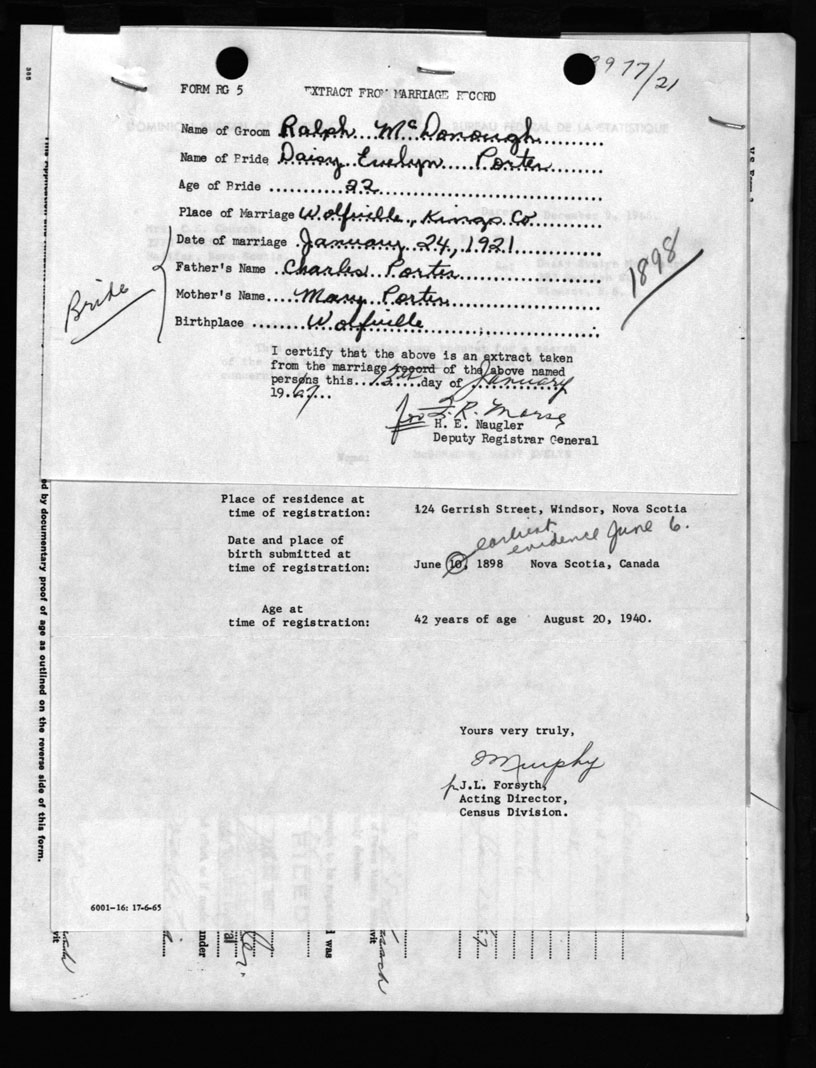 2977/21
FORM RG 5 EXTRACT FROM MARRIAGE RECORD
DOMINION BUREAU OF BUREAU FEDERAL DE LA STATISTIQUE
Name of Groom Ralph McDonough
Name of Bride Daisy Evelyn Porter
Age of Bride 22
Place of Marriage Wolfville, Kings Co
Date of marriage January 24, 1921
Father's Name Charles Porter
Mother's Name Mary Porter
Birthplace Wolfville
Bride
1898
I certify that the above is an extract taken
from the marriage record of the above named
persons this 12th day of January
1967
for R. Morse
H. E. Naugler
Deputy Registrar General
Place of residence at
time of registration: 124 Gerrish Street, Windsor, Nova Scotia
earliest
evidence June 6.
Date and place of
birth submitted at
time of registration: June 10, 1898 Nova Scotia, Canada
Age at
time of registration: 42 years of age August 20, 1940.
Yours very truly,
Murphy
J.L. Forsyth,
Acting Director,
Census Division.
6001-16: 17-6-65
ed by documentary proof of age as outlined on the reverse side of this form.
under
I was